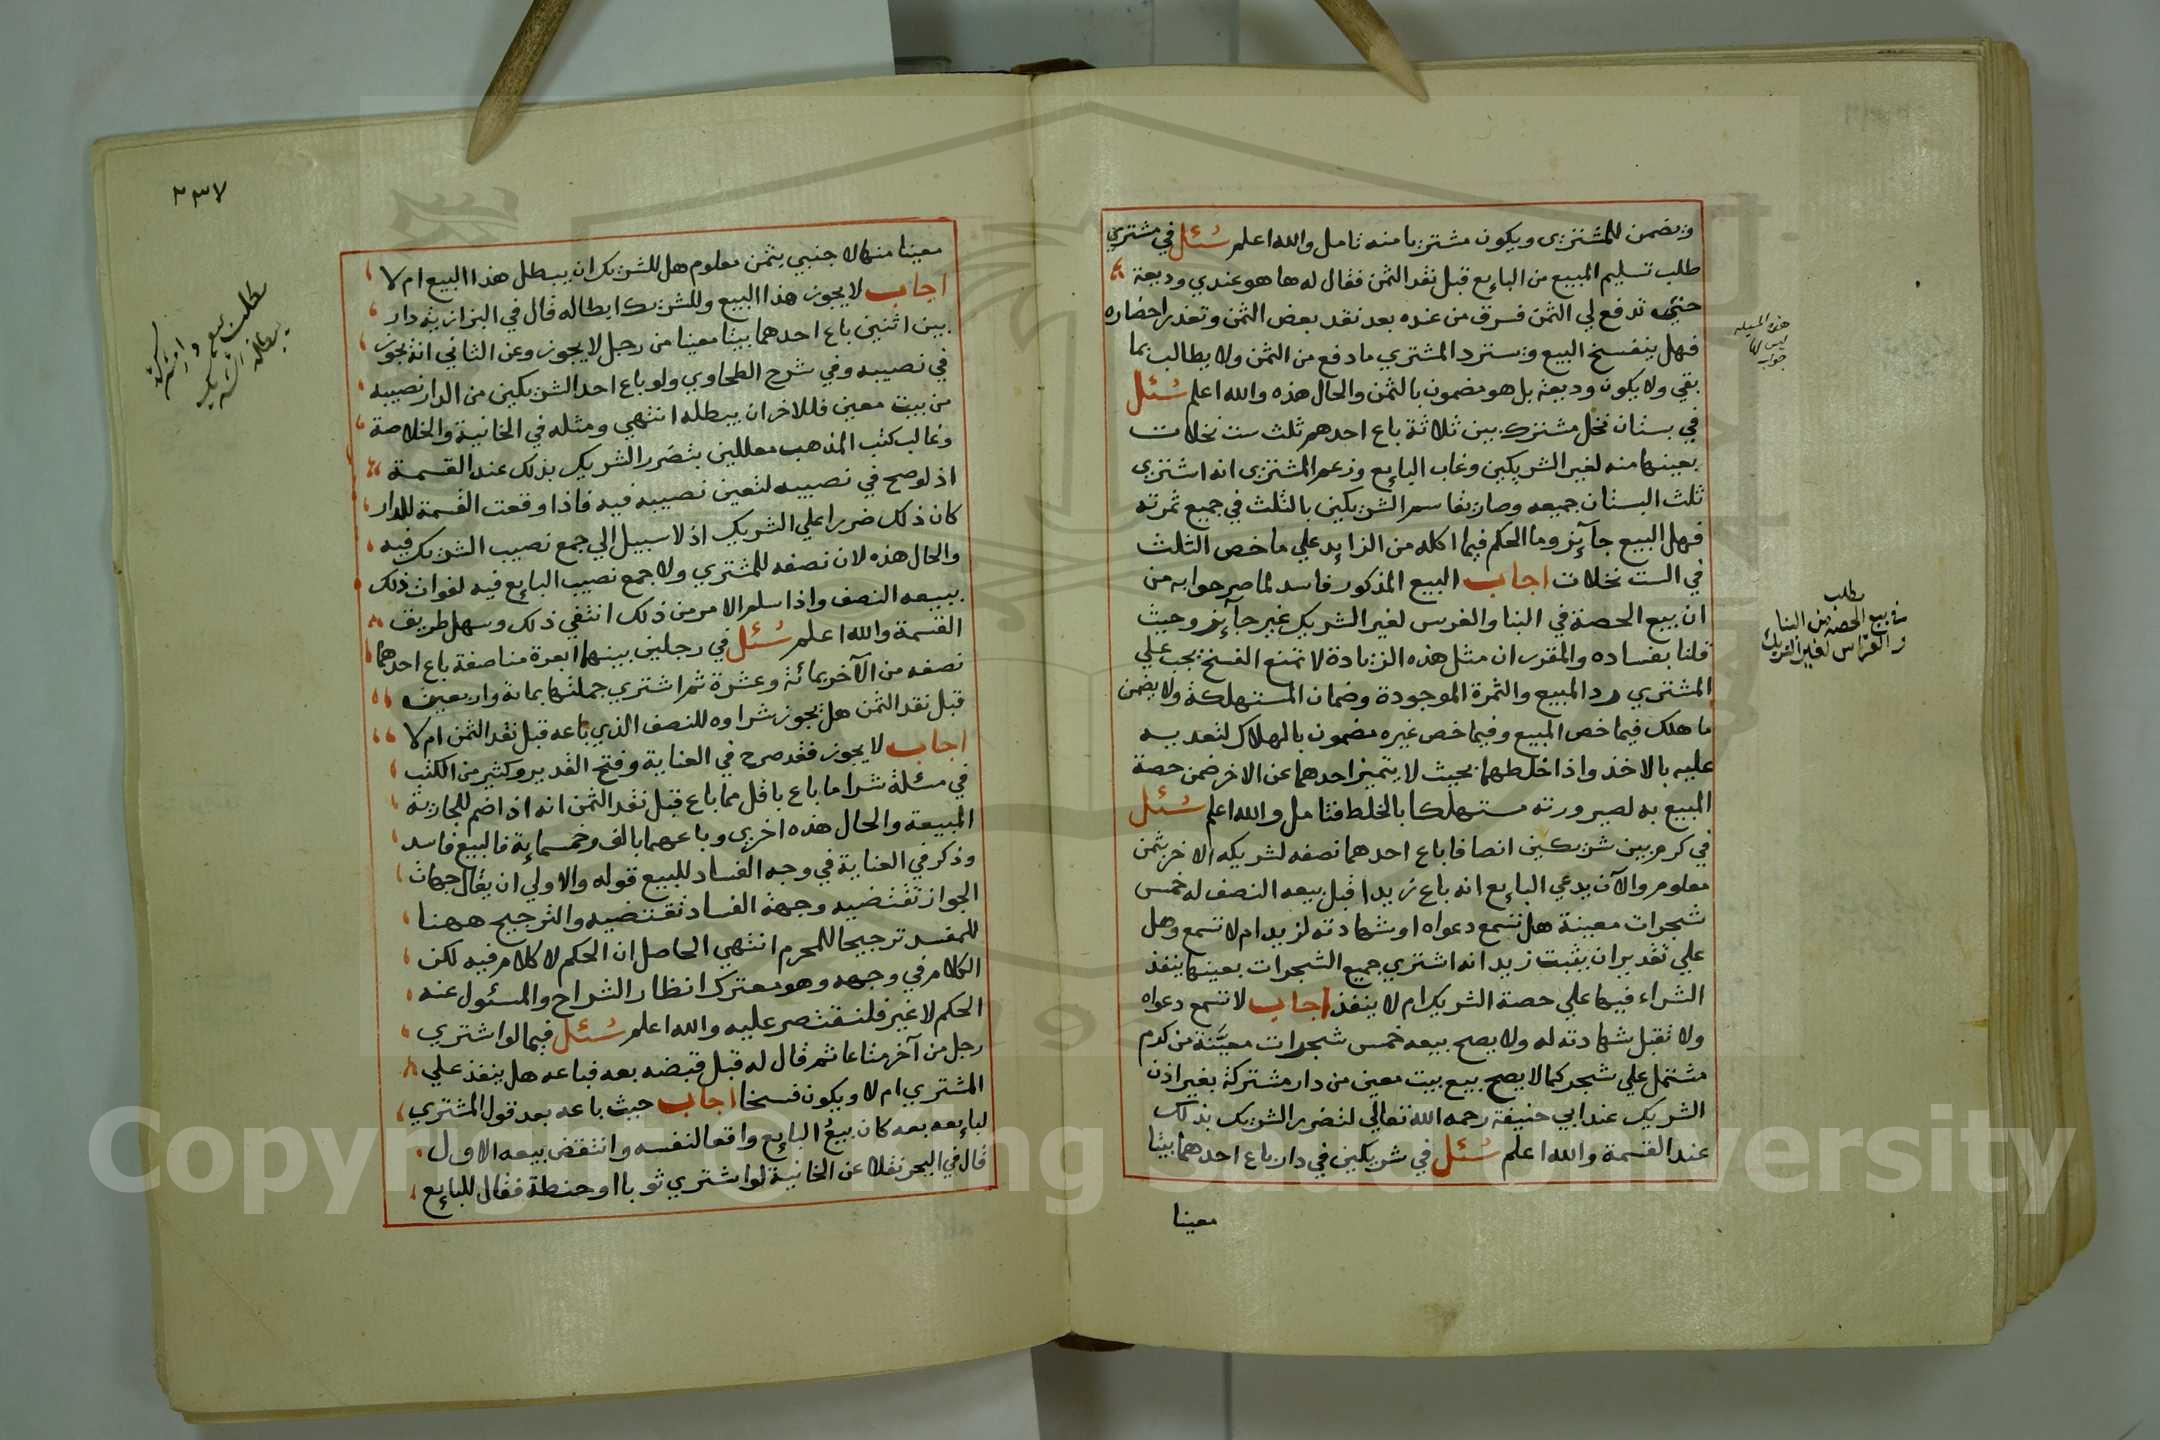 ويضمن للمشتري ويكون مشتريا منه تامل والله اعلم سئل في مشتري
طلب تسليم المبيع من البايع قبل نقد الثمن فقال له ها هو عندي وديعة
حتى تدفع لي الثمن فسرق من عنده بعد نقد بعض الثمن وتعذر احضاره
فهل ينفسخ البيع ويسترد المشتري ما دفع من الثمن ولا يطالب بما
بقي ولا يكون وديعة بل هو مضمون بالثمن والحال هذه والله اعلم سئل
في بستان نخل مشترك بين ثلاثة باع احدهم ثلث ست نخلات
بعينها منه لغير الشريكين وغاب البايع وزعم المشتري انه اشتري
ثلث البستان جميعه وصار يقاسم الشريكين بالثلث في جميع ثمرته
فهل البيع جآيز وما الحكم فيما اكله من الزايد علي ما خص الثلث
في الست نخلات اجاب البيع المذكور فاسد لما صرحوا به من
ان بيع الحصة في البنا والغرس لغير الشريك غير جآيز وحيث
قلنا بفساده والمقرر ان مثل هذه الزيادة لا تمنع الفسخ يجب علي
المشتري رد المبيع والثمرة الموجودة وضمان المستهلكة ولا يضمن
ما هلك فيما خص المبيع وفيما خص غيره مضمون بالهلاك لتعديه
عليه بالاخذ واذا خلطهما بحيث لا يتميز احدهما عن الاخر ضمن حصة
المبيع به لصيرورته مستهلكا بالخلط فتامل والله اعلم سئل
في كرم بين شريكين انصافا باع احدهما نصفه لشريكه الاخر بثمن
معلوم والآن يدعي البايع انه باع زيدا قبل بيعه النصف له خمس
شجرات معينة هل تسمع دعواه او شهادته لزيد ام لا تسمع وهل
علي تقدير ان يثبت زيد انه اشتري جميع الشجرات بعينها ينفذ
الشراء فيها علي حصة الشريك ام لا ينفذ اجاب لا تسمع دعواه
ولا تقبل شهادته له ولا يصح بيعه خمس شجرات معيّنة من كرم
مشتمل علي شجر كما لا يصح بيع بيت معين من دار مشتركة بغير اذن
الشريك عند ابي حنيفة رحمه الله تعالي لتضرر الشريك بذلك
عند القسمة والله اعلم سئل في شريكين في دار باع احدهما بيتا
معينا
هذه المسئله
ليس لها
جواب
مطلب
في بيع الحصة من البنا
والغراس لغير الشريك
٢٣٧
معينا منها لاجنبي بثمن معلوم هل للشريك ان يبطل هذا البيع ام لا
اجاب لا يجوز هذا البيع وللشريك ابطاله قال في البزازية دار
بين اثنين باع احدهما بيتا معينا من رجل لا يجوز وعن الثاني انه يجوز
في نصيبه وفي شرح الطحاوي ولو باع احد الشريكين من الدار نصيبه
من بيت معين فللاخر ان يبطله انتهي ومثله في الخانية والخلاصة
وغالب كتب المذهب معللين بتضرر الشريك بذلك عند القسمة
اذ لو صح في نصيبه لتعين نصيبه فيه فاذا وقعت القسمة للدار
كان ذلك ضررا علي الشريك اذ لا سبيل الي جمع نصيب الشريك فيه
والحال هذه لان نصفه للمشتري ولا جمع نصيب البايع فيه لفوات ذلك
ببيعه النصف واذا سلم الامر من ذلك انتفي ذلك وسهل طريق
القسمة والله اعلم سئل في رجلين بينهما بعرة مناصفة باع احدهما
نصفه من الآخر بمائة وعشرة ثم اشتري جملتها بماية واربعين
قبل نقد الثمن هل يجوز شراوه للنصف الذي باعه قبل نقد الثمن ام لا
اجاب لا يجوز فقد صرح في العناية وفتح القدير وكثير من الكتب
في مسئلة شرا ما باع باقل مما باع قبل نقد الثمن انه اذا ضم للجارية
المبيعة والحال هذه اخري وباعهما بالف وخمسماية فالبيع فاسد
وذكر في العناية في وجه الفساد للبيع قوله والاولي ان يقال جهات
الجواز تقتضيه وجهة الفساد تقتضيه والترجيح ههنا
للمفسد ترجيحا للمحرم انتهي الحاصل ان الحكم لا كلام فيه لكن
الكلام في وجهه وهو معترك انظار الشراح والمسئول عنه
الحكم لا غير فلنقتصر عليه والله اعلم سئل فيما لو اشتري
رجل من آخر متاعا ثم قال له قبل قبضه بعه فباعه هل ينفذ علي
المشتري ام لا ويكون فسخا اجاب حيث باعه بعد قول المشتري
لبايعه بعه كان بيع البايع واقعا لنفسه وانتقض بيعه الاول
قال في البحر نقلا عن الخانية لو اشتري ثوبا او حنطة فقال للبايع
مطلب بيع
Copyright © King Saud University